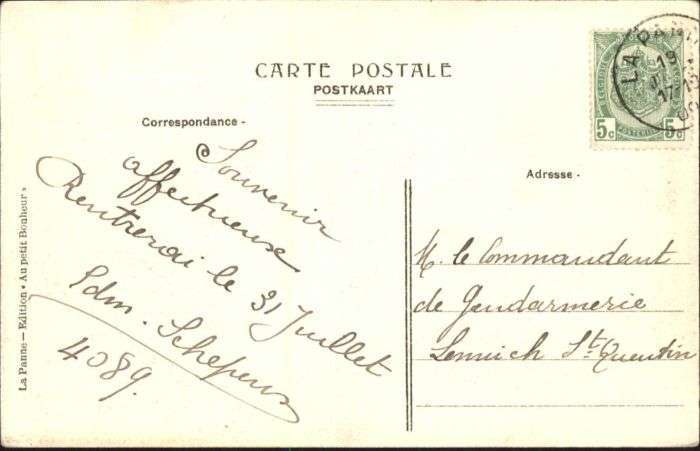 CARTE POSTALE
POSTKAART
Correspondance -
Souvenir
affectueux
Rentrerai le 31 Juillet
Edm. Schepens
4089.
La Panne — Edition • Au petit Bonheur »
LA PANNE
19
17-18
5c 5c
Adresse -
M. le Commandant
de Gendarmerie
Lennick St. Quentin